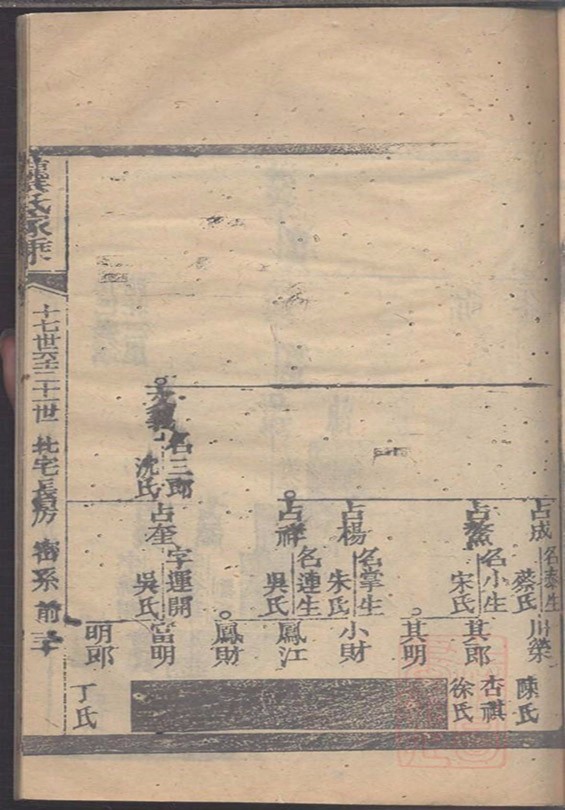 龔氏家乘
十七世至二十一世 北宅長房 密系 前 三
占成 名泰生 蔡氏
川榮
陳氏
占鰲 名小生 宋氏
其郎
杏祺
徐氏
其明
占楊 名掌生 朱氏
小財
占祥 名連生 吳氏
鳳江
鳳財
名三郎 沈氏
占奎 字運開 吳氏
富明
明郎
丁氏